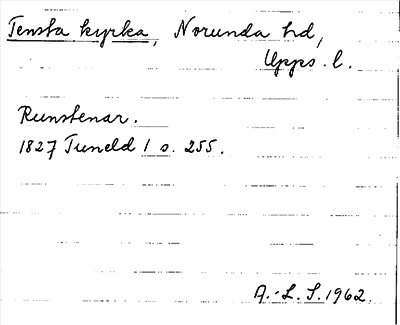 Tensta kyrka, Norunda hd,
Upps. l.
Runstenar.
1827 Tuneld 1 s. 255.
A.-L. S. 1962.